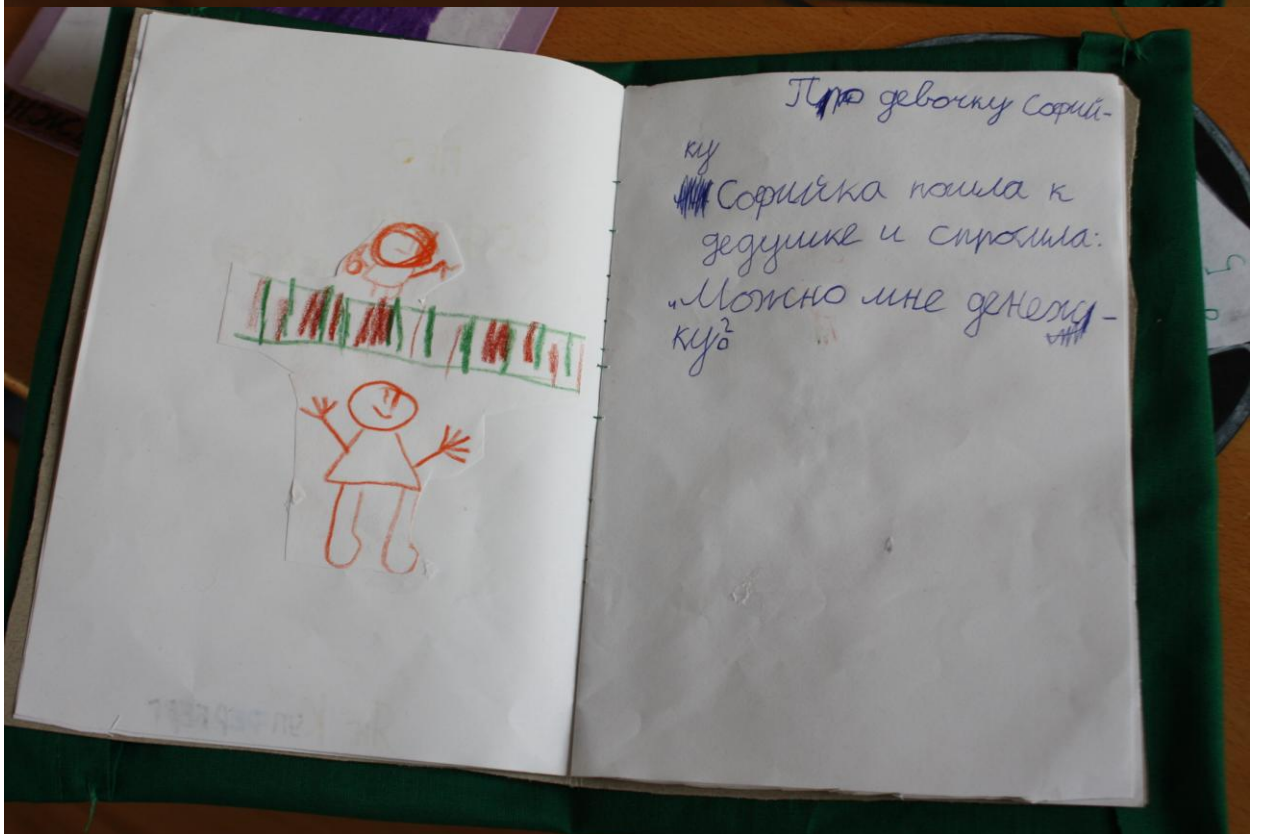 Про девочку Софий-
ку
Софийка пошла к
дедушке и спросила:
„Можно мне денежу-
ку?